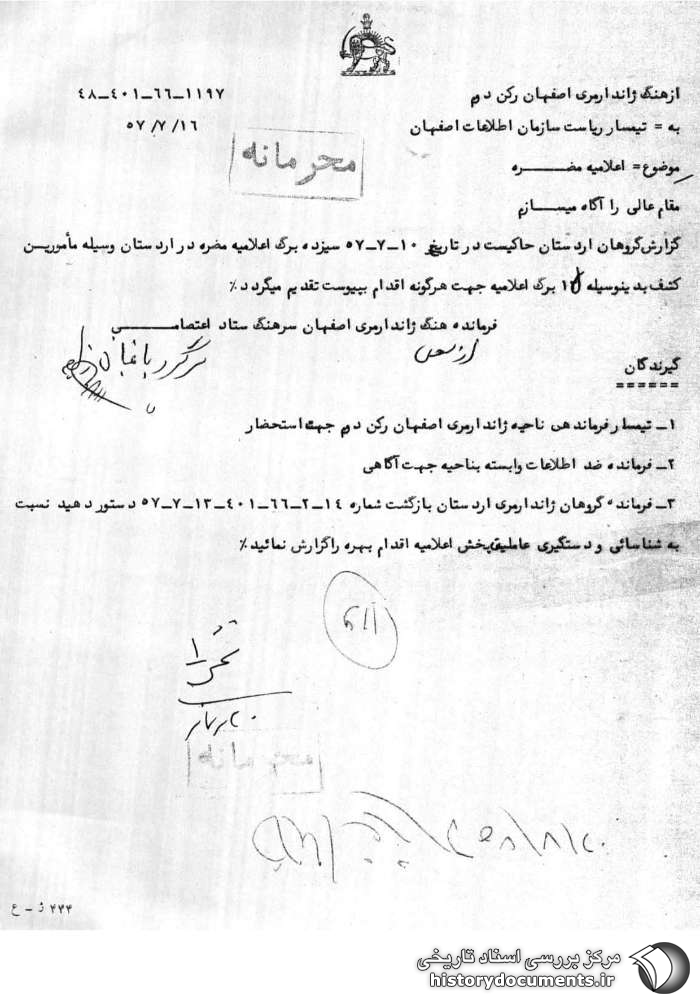 ازهنگ ژاندارمری اصفهان رکن دوم
۴۸-۴۰۱-۶۶-۱۱۹۷
به = تیمسار ریاست سازمان اطلاعات اصفهان
۵۷/۷/۱۶
محرمانه
موضوع = اعلامیه مضره
مقام عالی را آگاه میسازم
گزارش گروهان اردستان حاکیست در تاریخ ۱۰-۷-۵۷ سیزده برگ اعلامیه مضره در اردستان وسیله مأمورین
کشف بدینوسیله برگ اعلامیه جهت هرگونه اقدام بپیوست تقدیم میگردد٪
فرمانده هنگ ژاندارمری اصفهان سرهنگ ستاد اعتصامی
سرگرد باغبان
گیرندگان
======
۱- تیمسار فرماندهی ناحیه ژاندارمری اصفهان رکن دوم جهت استحضار
۲- فرمانده ضد اطلاعات وابسته بناحیه جهت آگاهی
۳- فرمانده گروهان ژاندارمری اردستان بازگشت شماره ۱۴-۲-۶۶-۴۰۱-۱۳-۷-۵۷ دستور دهید نسبت
به شناسائی و دستگیری عاملین پخش اعلامیه اقدام بهره را گزارش نمائید٪
محرمانه
۴۳۴ ژ - ع
مرکز بررسی اسناد تاریخی
historydocuments.ir